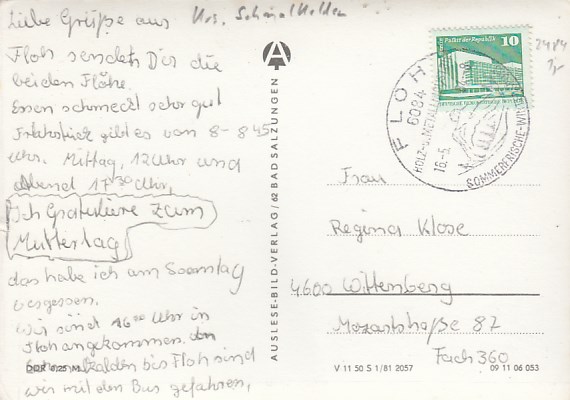 Liebe Grüße aus Krs. Schmalkalden
Floh sendet Dir die
beiden Flöhe
Essen schmeckt sehr gut
Frühstück gibt es von 8-8 45
Uhr. Mittag, 12 Uhr und
Abend 17 30 Uhr,
Ich Gratuliere zum
Muttertag
das habe ich am Sonntag
vergessen.
Wir sind 16 00 Uhr in
Floh angekommen. Von
Schmalkalden bis Floh sind
wir mit den Bus gefahren,
DDR 0,25 M
AUSLESE-BILD-VERLAG/62 BAD SALZUNGEN
A
Palast der Republik 10
DDR
FLOH
6084
HOLZ- U. METALL
16.-5.
SOMMERFRISCHE-WI
2484
Frau
Regina Klose
4600 Wittenberg
Mozartstraße 87
Fach 360
V 11 50 S 1/81 2057
09 11 06 053